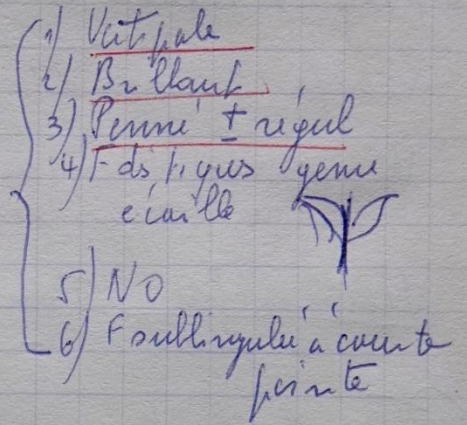 1) Vert pale
2) Brillant
3) Penné ± régul
4) F ds tiges genre
écaille
5) NO
6) F sublingulée à courte
pointe